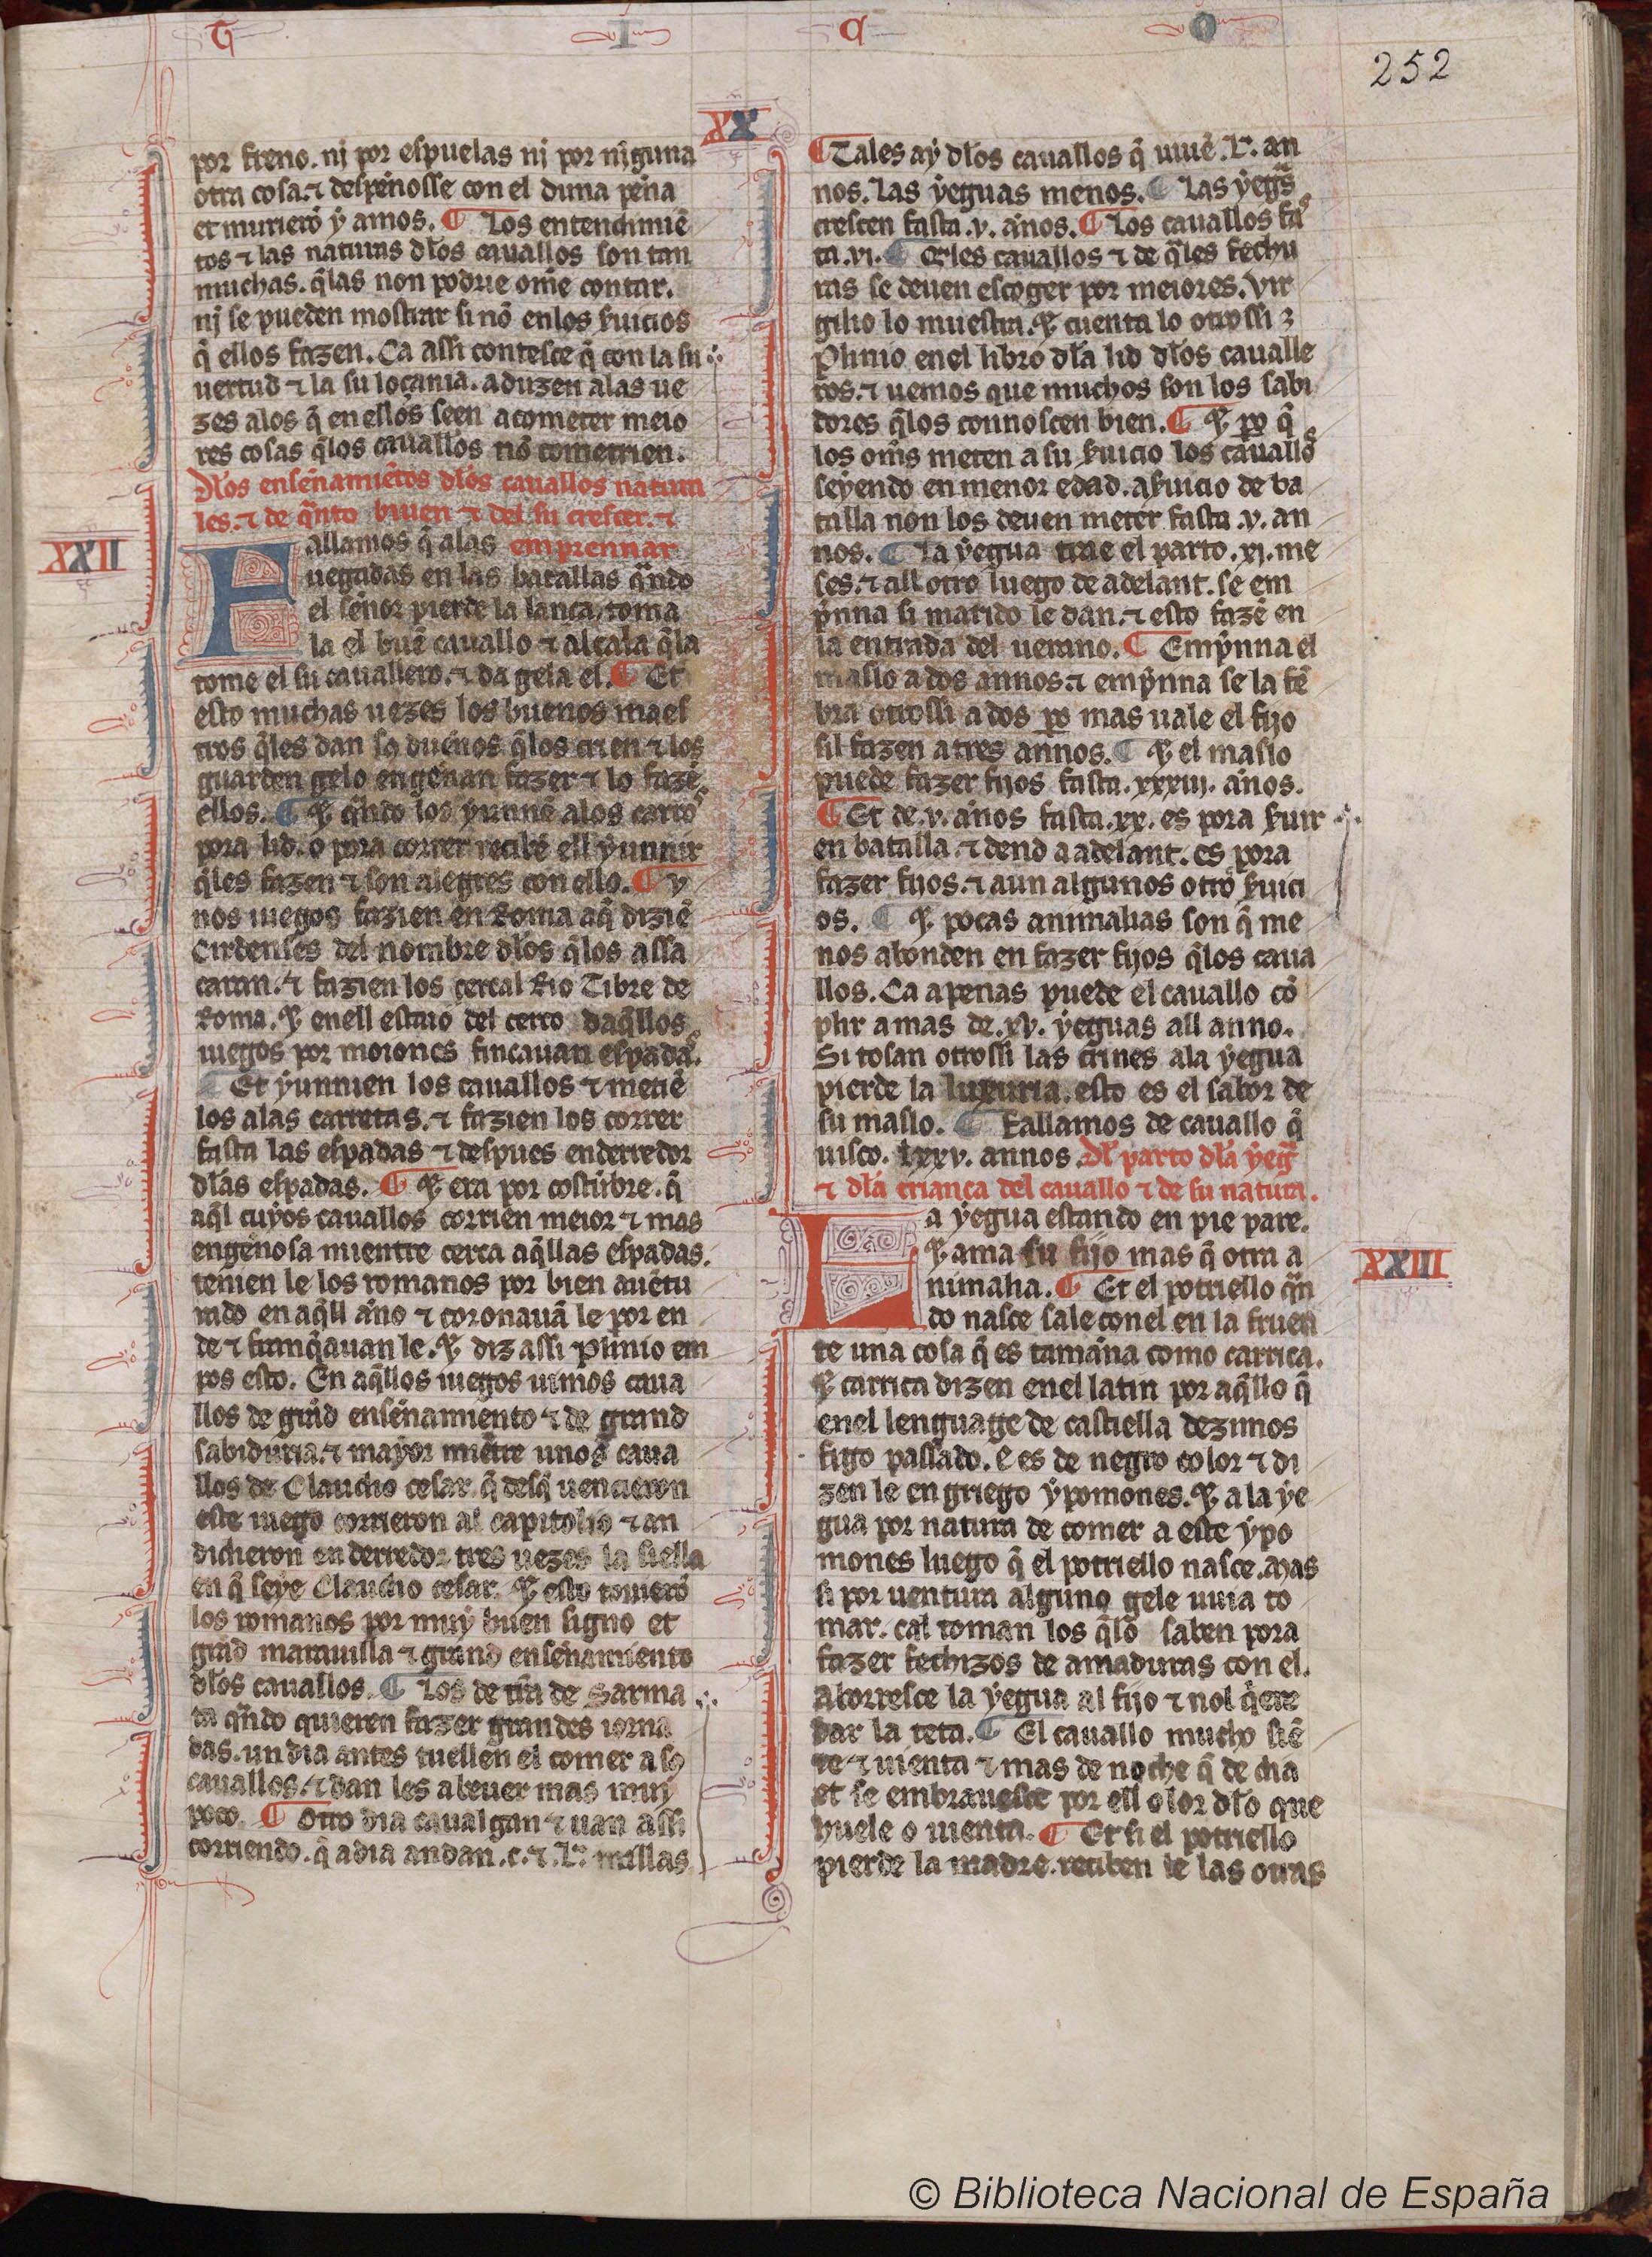 T I C O
252
XX
por freno. nj por espuelas nj por njguna
otra cosa. ⁊ despenosse con el duna pena
et murierō ẏ amos. ¶ Los entendimiē
tos ⁊ las naturas dłos cauallos son tan
muchas. q̄las non podrie om̄e contar.
nj se pueden mostrar si nō en los seruicios
q̄ ellos fazen. Ca assi contesce q̄ con la su
uertud ⁊ la su loçania. aduzen alas ue
zes alos q̄ en ellos seen acometer meio
res cosas q̄los cauallos nō cometrien.
Dłos ensenamiētos dłos cauallos natura
les. ⁊ de q̄nto biuen ⁊ del su crescer. ⁊
emprennar
XXII
Fallamos q̄ alas
uegadas en las batallas q̄ndo
el senor pierde la lança, toma
la el buē cauallo ⁊ alçala q̄la
tome el su cauallero. ⁊ da gela el. ¶ Et
esto muchas uezes los buenos maes
tros q̄les dan sos duenos q̄los crien ⁊ los
guarden gelo engenan fazer ⁊ lo fazē
ellos. ¶ E q̄ndo los ẏunnē alos carros
pora lid. o pora correr recibē ell ẏunnir
q̄les fazen ⁊ son alegres con ello. ¶ V
nos iuegos fazien en Roma aq̄ diziē
Circenses del nombre dłos q̄los assa
caran. ⁊ fazien los cercal Rio Tibre de
Roma. E en ell estaio del cerco daq̄llos
iuegos por moiones fincauan espadas.
¶ Et ẏunnien los cauallos ⁊ metiē
los alas carretas. ⁊ fazien los correr
fasta las espadas ⁊ despues enderredor
dłas espadas. ¶ E era por costūbre. q̄
aq̄l cuẏos cauallos corrien meior ⁊ mas
engenosa mientre cerca aq̄llas espadas.
tenien le los romanos por bien auētu
rado en aq̄ll ano ⁊ coronauā le por en
de ⁊ franq̄auan le. E diz assi Plinio em
pos esto. En aq̄llos iuegos uimos caua
llos de grād ensenamiento ⁊ de grand
sabiduria. ⁊ mayor miētre unos caua
llos de Claudio cesar. q̄ desq̄ uencieron
este iuego corrieron al capitolio ⁊ an
didieron en derredor tres uezes la siella
en q̄ seẏe Claudio cesar. E esto touierō
los romanos por muẏ buen signo et
grād marauilla ⁊ grand ensenamiento
dłos cauallos. ¶ Los de tr̄ra de Sarma
cia q̄ndo quieren fazer grandes iorna
das. un dia antes tuellen el comer a sos
cauallos. ⁊ dan les a beuer mas muẏ
poco. ¶ Otro dia caualgan ⁊ uan assi
corriendo. q̄ a dia andan .c. ⁊ .L. millas
¶ Tales aẏ dłos cauallos q̄ uiuē .L. an
nos. Las ẏeguas menos. ¶ Las ẏeguas
crescen fasta .v. anos. ¶ Los cauallos fas
ta .vi. ¶ Q̄les cauallos ⁊ de q̄les fechu
ras se deuen escoger por meiores. Vir
gilio lo muestra. E cuenta lo otrossi
Plinio en el libro dła lid dłos caualle
ros. ⁊ uemos que muchos son los sabi
dores q̄los connoscen bien. ¶ E po q̄
los om̄s meten a su seruicio los cauallos
seẏendo en menor edad. a seruicio de ba
talla non los deuen meter fasta .v. an
nos. ¶ La ẏegua trae el parto .xi. me
ses. ⁊ all otro luego de adelant. se em
p̄nna si marido le dan. ⁊ esto fazē en
la entrada del uerano. ¶ Emp̄nna el
maslo a dos annos. ⁊ emp̄nna se la fē
bra otrossi a dos po mas uale el fijo
sil fazen a tres annos. ¶ E el maslo
puede fazer fijos fasta .xxxiij. anos.
¶ Et de .v. anos fasta .xx. es pora seruir
en batalla. ⁊ dend a adelant. es pora
fazer fijos. ⁊ aun algunos otros serui ci
os. ¶ E pocas animalias son q̄ me
nos abonden en fazer fijos q̄los caua
llos. Ca apenas puede el cauallo cō
plir a mas de .xv. ẏeguas all anno.
Si tosan otrossi las crines ala ẏegua
pierde la luxuria. esto es el sabor de
su maslo. ¶ Fallamos de cauallo q̄
uisco. lxxv. annos. Dł parto dła ẏeḡ
⁊ dła criança del cauallo ⁊ de su natura.
XXIII
La ẏegua estando en pie pare.
E ama su fijo mas q̄ otra a
nimalia. ¶ Et el potriello q̄n
do nasce sale con el en la fruen
te una cosa q̄ es tamana como carrica.
E carrica dizen en el latin por aq̄llo q̄
en el lenguage de castiella dezimos
figo passado. E es de negro color ⁊ di
zen le en griego ẏpomones. E a la ẏe
gua por natura de comer a este ẏpo
mones luego q̄ el potriello nasce. Mas
si por uentura alguno gele uuia to
mar. cal toman los q̄lo saben pora
fazer fechizos de amaduras con el.
aborresce la ẏegua al fijo ⁊ nol q̄ere
dar la teta. ¶ El cauallo mucho siē
te ⁊ uienta ⁊ mas de noche q̄ de dia
et se embrauesce por ell olor dło que
huele o uienta. ¶ Et si el potriello
pierde la madre. reciben le las otras
© Biblioteca Nacional de España